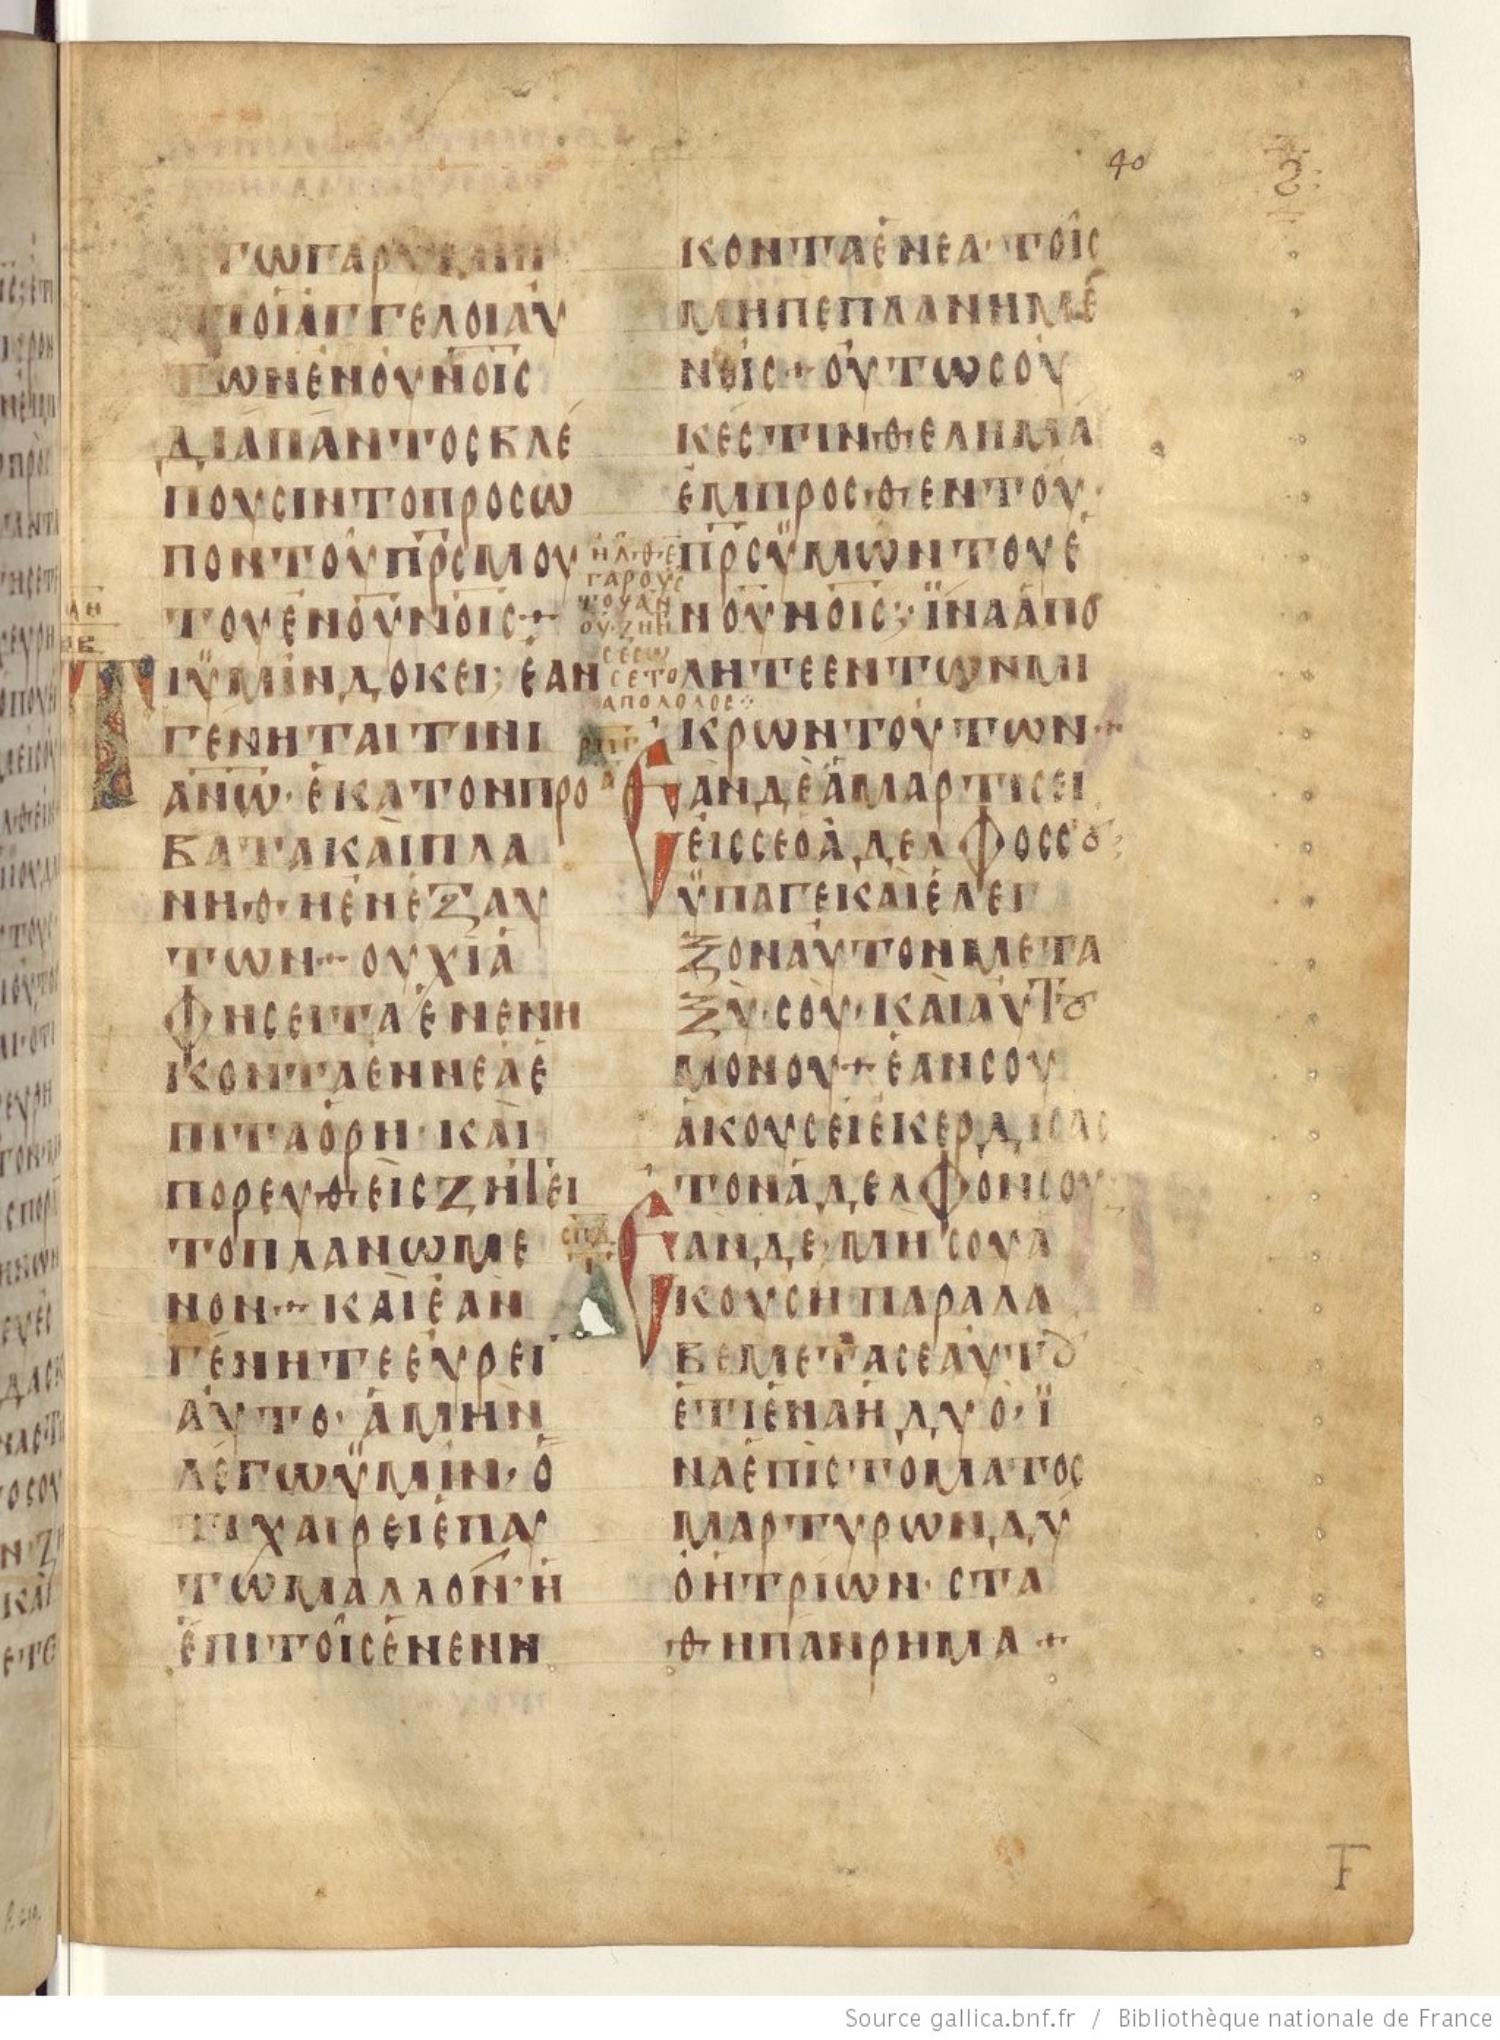 40
ΓΩΓΑΡΥΜΙΝ
ΤΙΟΙΑΓΓΕΛΟΙΑΥ
ΤΩΝΕΝΟΥΝΟΙΣ
ΔΙΑΠΑΝΤΟΣΒΛΕ
ΠΟΥΣΙΝΤΟΠΡΟΣΩ
ΠΟΝΤΟΥΠΡΣΜΟΥ
ΤΟΥΕΝΟΥΝΟΙΣ+
ΤΙΫΜΙΝΔΟΚΕΙ; ΕΑΝ
ΓΕΝΗΤΑΙΤΙΝΙ
ΑΝΩ· ΕΚΑΤΟΝΠΡΟ
ΒΑΤΑΚΑΙΠΛΑ
ΝΗΘΗΕΝΕΞΑΥ
ΤΩΝ+ΟΥΧΙΑ
ΦΗΣΕΙΤΑΕΝΕΝΗ
ΚΟΝΤΑΕΝΝΕΑΕ
ΠΙΤΑΟΡΗ·ΚΑΙ
ΠΟΡΕΥΘΕΙΣΖΗΤΕΙ
ΤΟΠΛΑΝΩΜΕ
ΝΟΝ+ΚΑΙΕΑΝ
ΓΕΝΗΤΕΕΥΡΕΙ
ΑΥΤΟ· ΑΜΗΝ
ΛΕΓΩΫΜΙΝ, Ο
ΤΙΧΑΙΡΕΙΕΠΑΥ
ΤΩΜΑΛΛΟΝ·Η
ΕΠΙΤΟΙΣΕΝΕΝΗ
ΗΛΘΕ
ΓΑΡΟΥΣ
ΤΟΥΑΝ
ΟΥ·ΖΗΗ
ΣΕΣΩ
ΣΕΤΟ
ΑΠΟΛΟΛΟΣ
ΚΟΝΤΑΕΝΕΑ·ΤΟΙΣ
ΜΗΠΕΠΛΑΝΗΜΕ
ΝΟΙΣ+ΟΥΤΩΣΟΥ
ΚΕΣΤΙΝΘΕΛΗΜΑ
ΕΜΠΡΟΣΘΕΝΤΟΥ
ΠΡΣΫΜΩΝΤΟΥΕ
ΝΟΥΝΟΙΣ; ΪΝΑΑΠΟ
ΛΗΤΕΕΝΤΩΝΜΙ
ΚΡΩΝΤΟΥΤΩΝ+
ΕΑΝΔΕΑΜΑΡΤΙΣΕΙ
ΕΙΣΣΕΟΑΔΕΛΦΟΣΣΟΥ
ΫΠΑΓΕΚΑΙΕΛΕΓ
ΞΟΝΑΥΤΟΝΜΕΤΑ
ΞΥ·ΣΟΥ·ΚΑΙΑΥΤΟΥ
ΜΟΝΟΥ+ΕΑΝΣΟΥ
ΑΚΟΥΣΕΙΕΚΕΡΔΙΣΑΣ
ΤΟΝΑΔΕΛΦΟΝΣΟΥ
ΕΑΝΔΕ·ΜΗΣΟΥΑ
ΚΟΥΣΗΠΑΡΑΛΑ
ΒΕΜΕΤΑΣΕΑΥΤΟΥ
ΕΤΙΕΝΑΗΔΥΟ, Ϊ
ΝΑΕΠΙΣΤΟΜΑΤΟΣ
ΜΑΡΤΥΡΩΝΔΥ
ΟΗΤΡΙΩΝ·ΣΤΑ
ΘΗΠΑΝΡΗΜΑ+
Source gallica.bnf.fr / Bibliothèque nationale de France